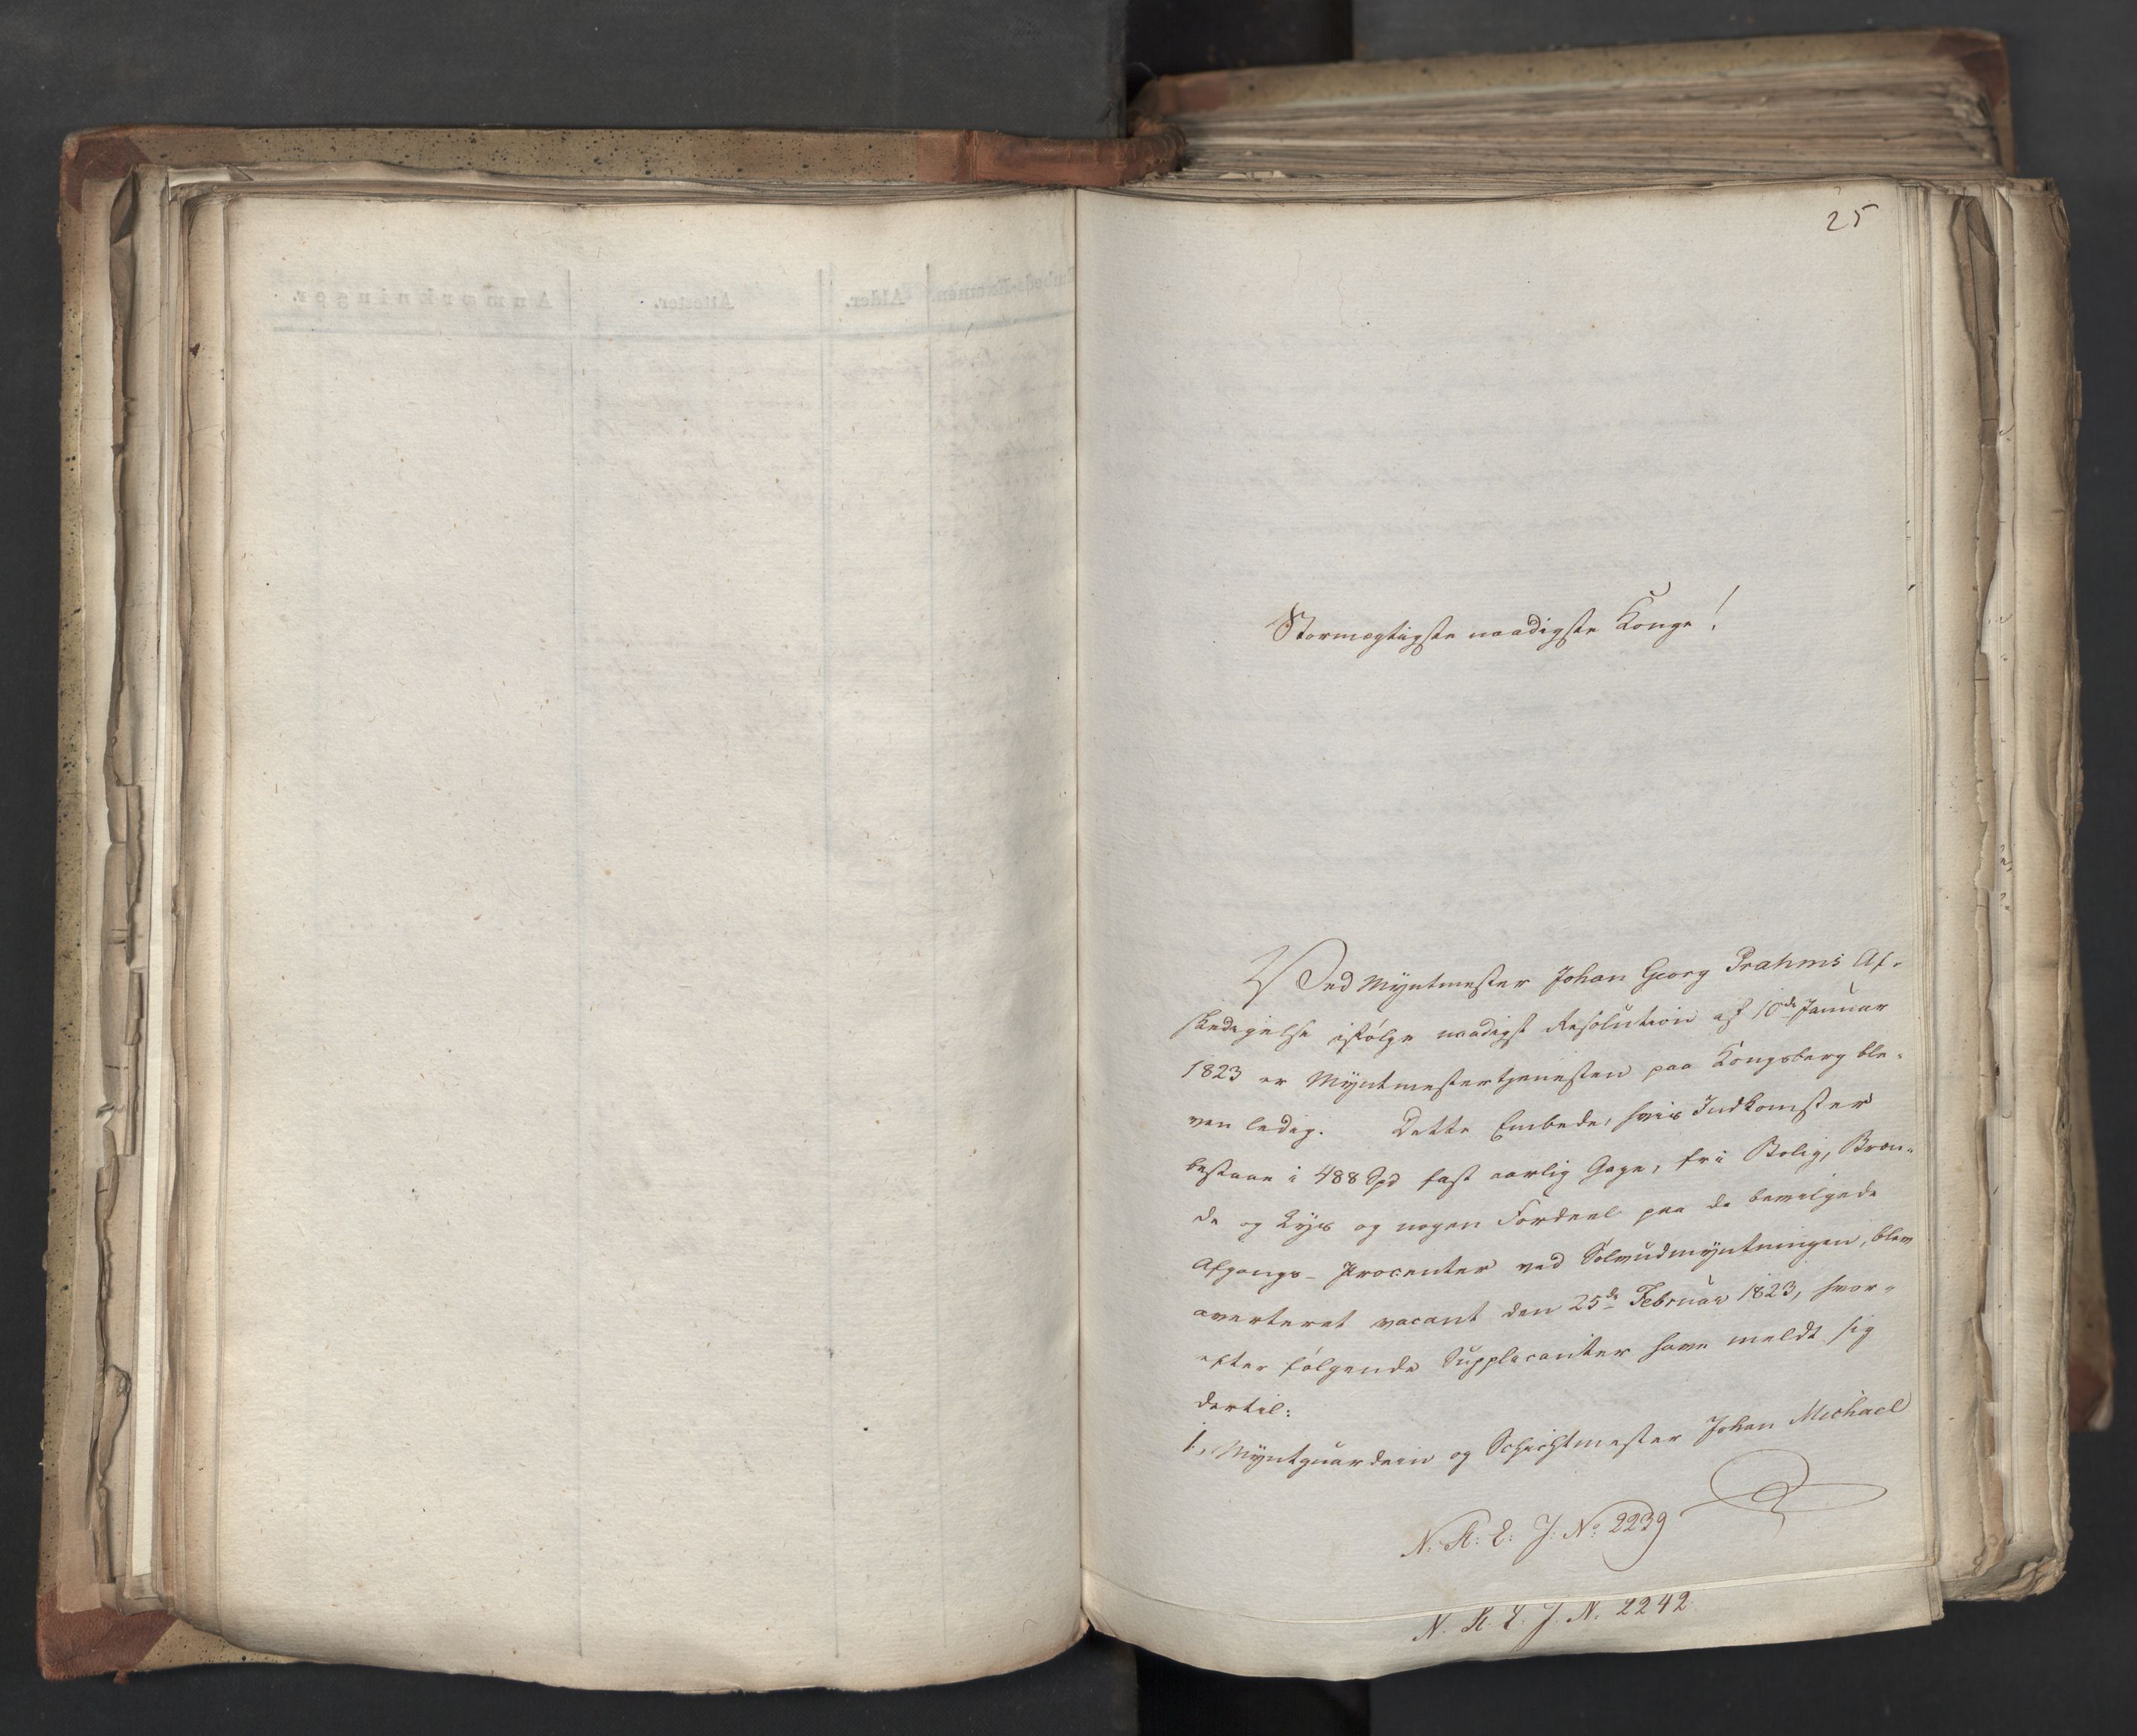 25
Stormægtigste naadigste Konge!
Ved Myntmester Johan Georg Prahms Af-
skedigelse ifølge naadigst Resolution af 10de Januar
1823 er Myntmestertjenesten paa Kongsberg ble-
ven ledig. Dette Embede, hvis Indkomster
bestaae i 488 Spd fast aarlig Gage, fri Bolig, Bræn-
de og Lys og nogen Fordeel paa de bevilgede
Afgangs-Procenter ved Sølvudmyntningen, blev
averteret vacant den 25de Februar 1823, hvor-
efter følgende Supplicanter have meldt sig
dertil:
1., Myntguardein og Schichtmester Johan Michael
N. R: E: J: No 2239
N. R. E. J. N. 2242